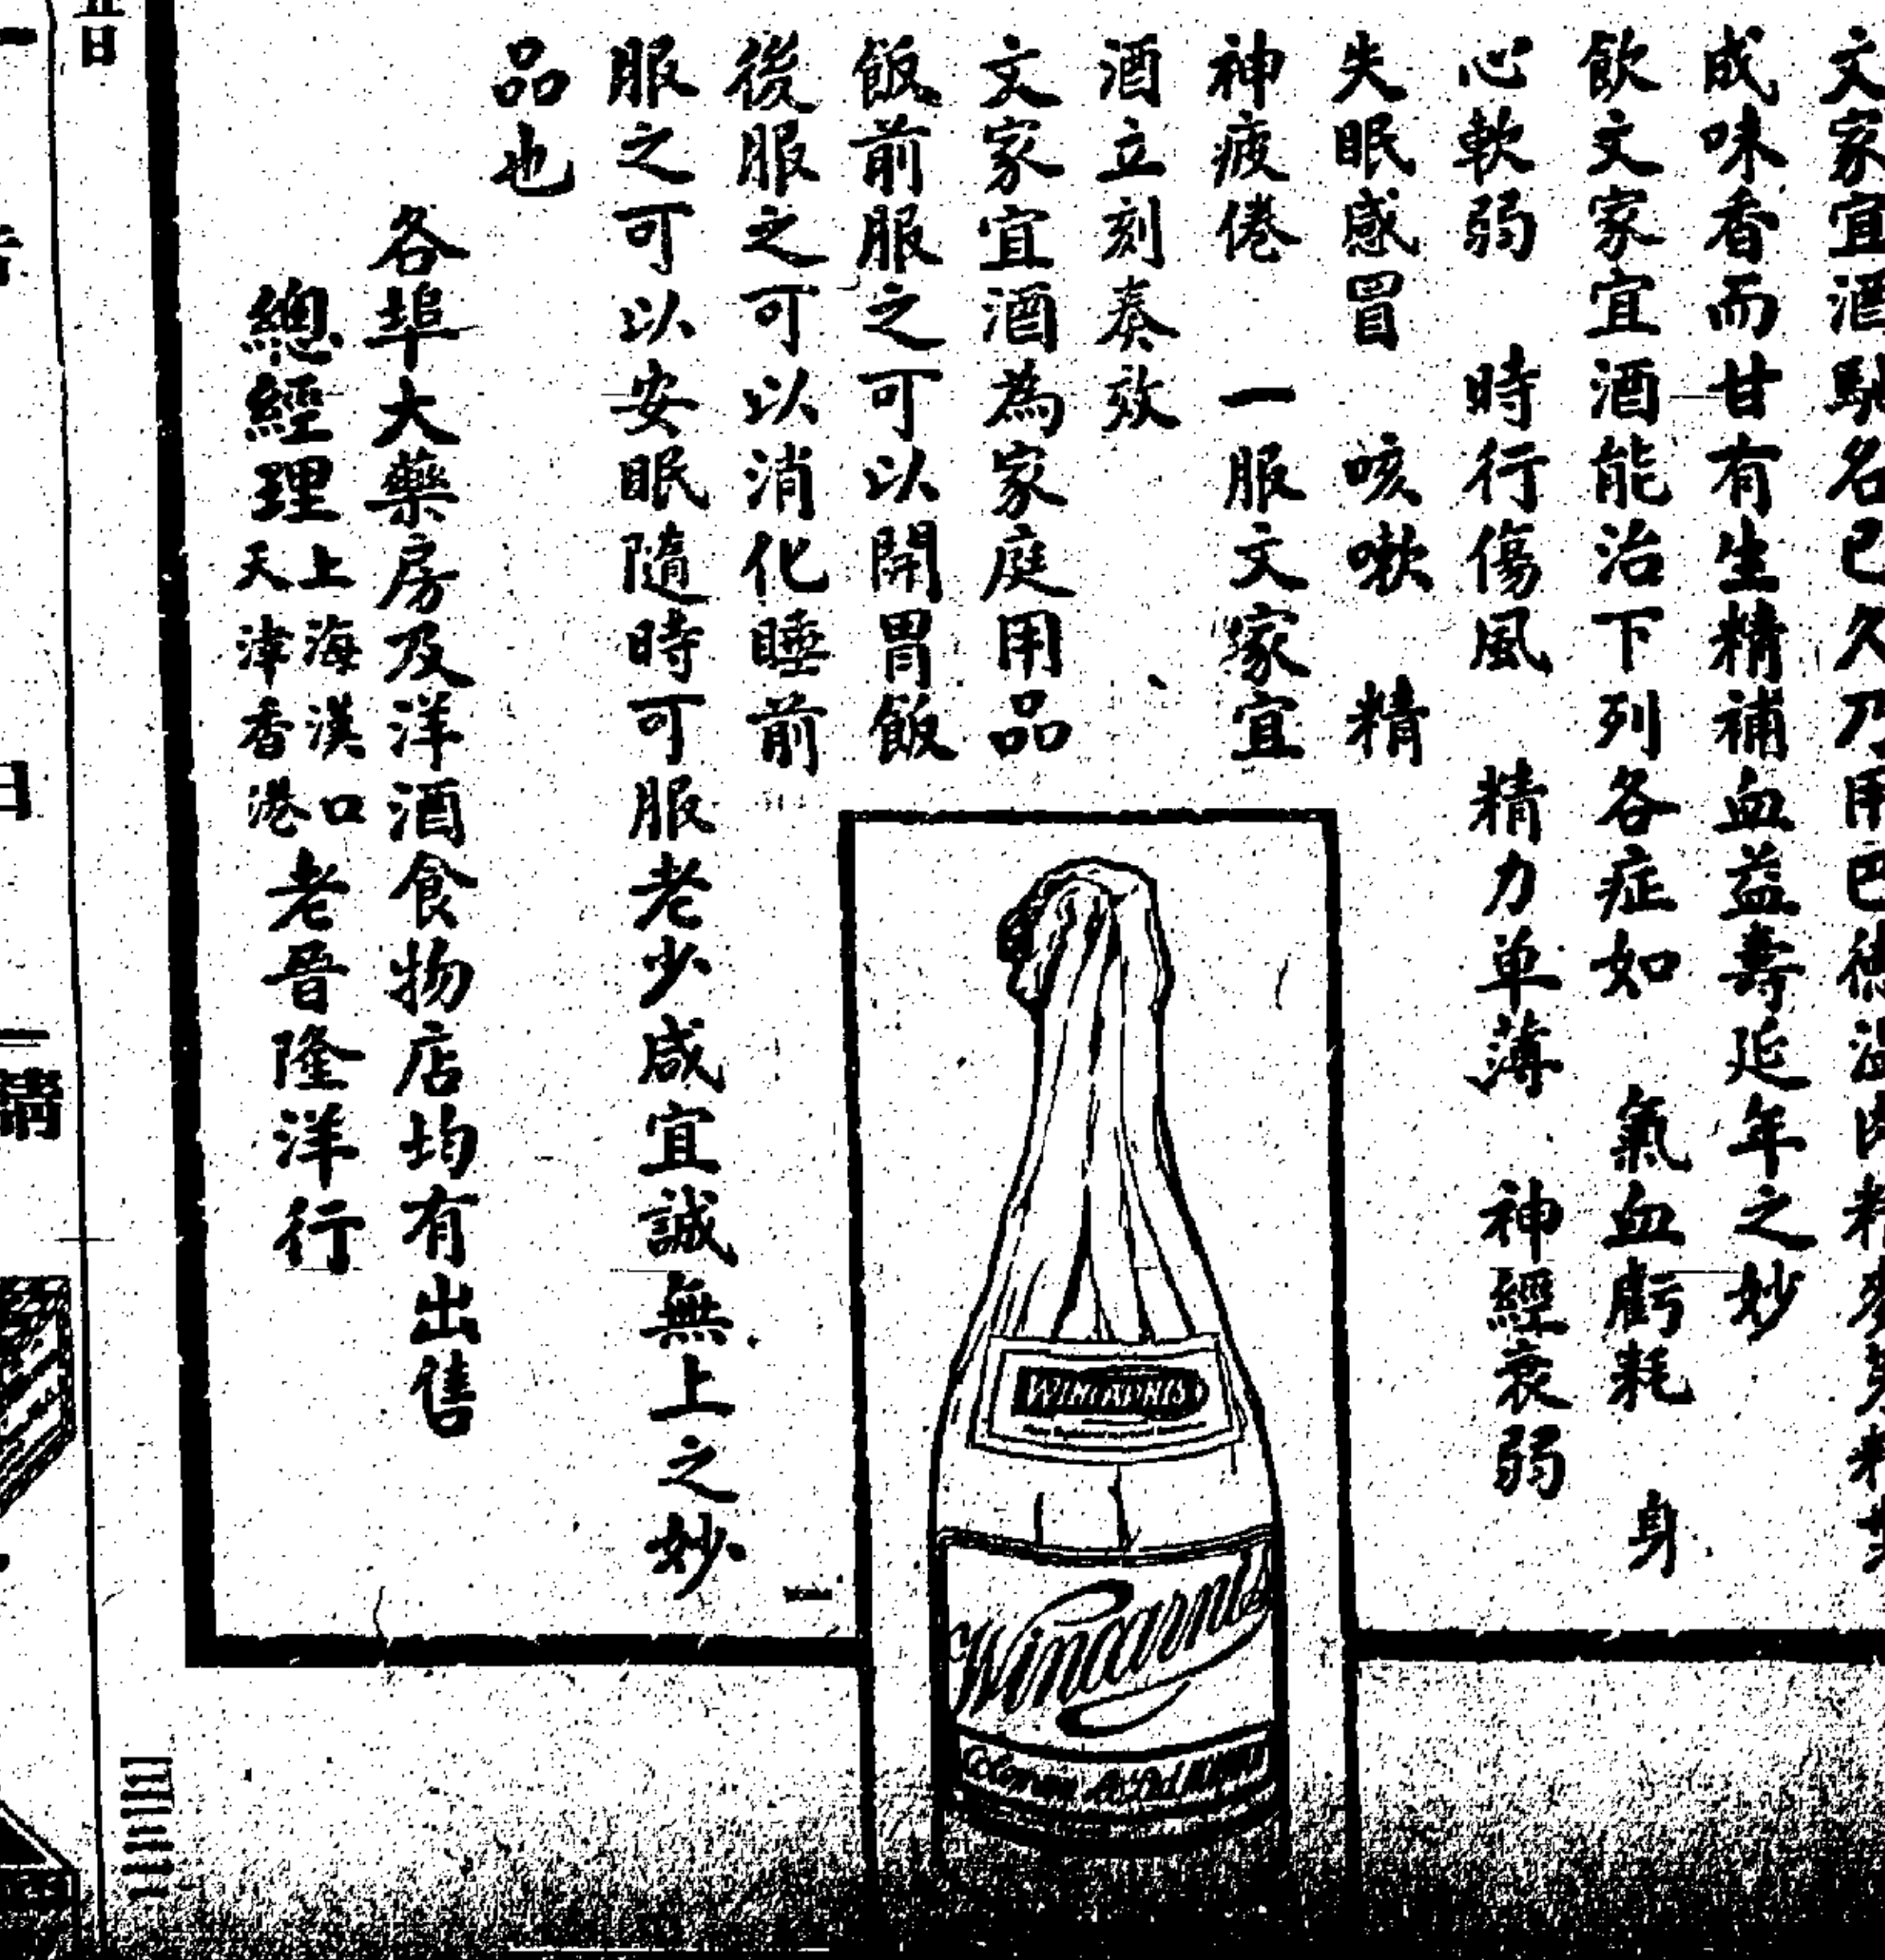 文家宜酒馳名已久乃用巴德溫肉精麥芽精
成味香而甘有生精補血益壽延年之妙
飲文家宜酒能治下列各症如　氣血虧耗　身
心軟弱　時行傷風　精力单薄　神經衰弱
失眠感冒　咳嗽　精
神疲倦　一服文家宜
酒立刻奏效
文家宜酒為家庭用品
飯前服之可以開胃飯
後服之可以消化睡前
服之可以安眠隨時可服老少咸宜誠無上之妙
品也
各埠大藥房及洋酒食物店均有出售
總經理
上海漢口
天津香港
老晉隆洋行
WINCARNIS
Wincarnis